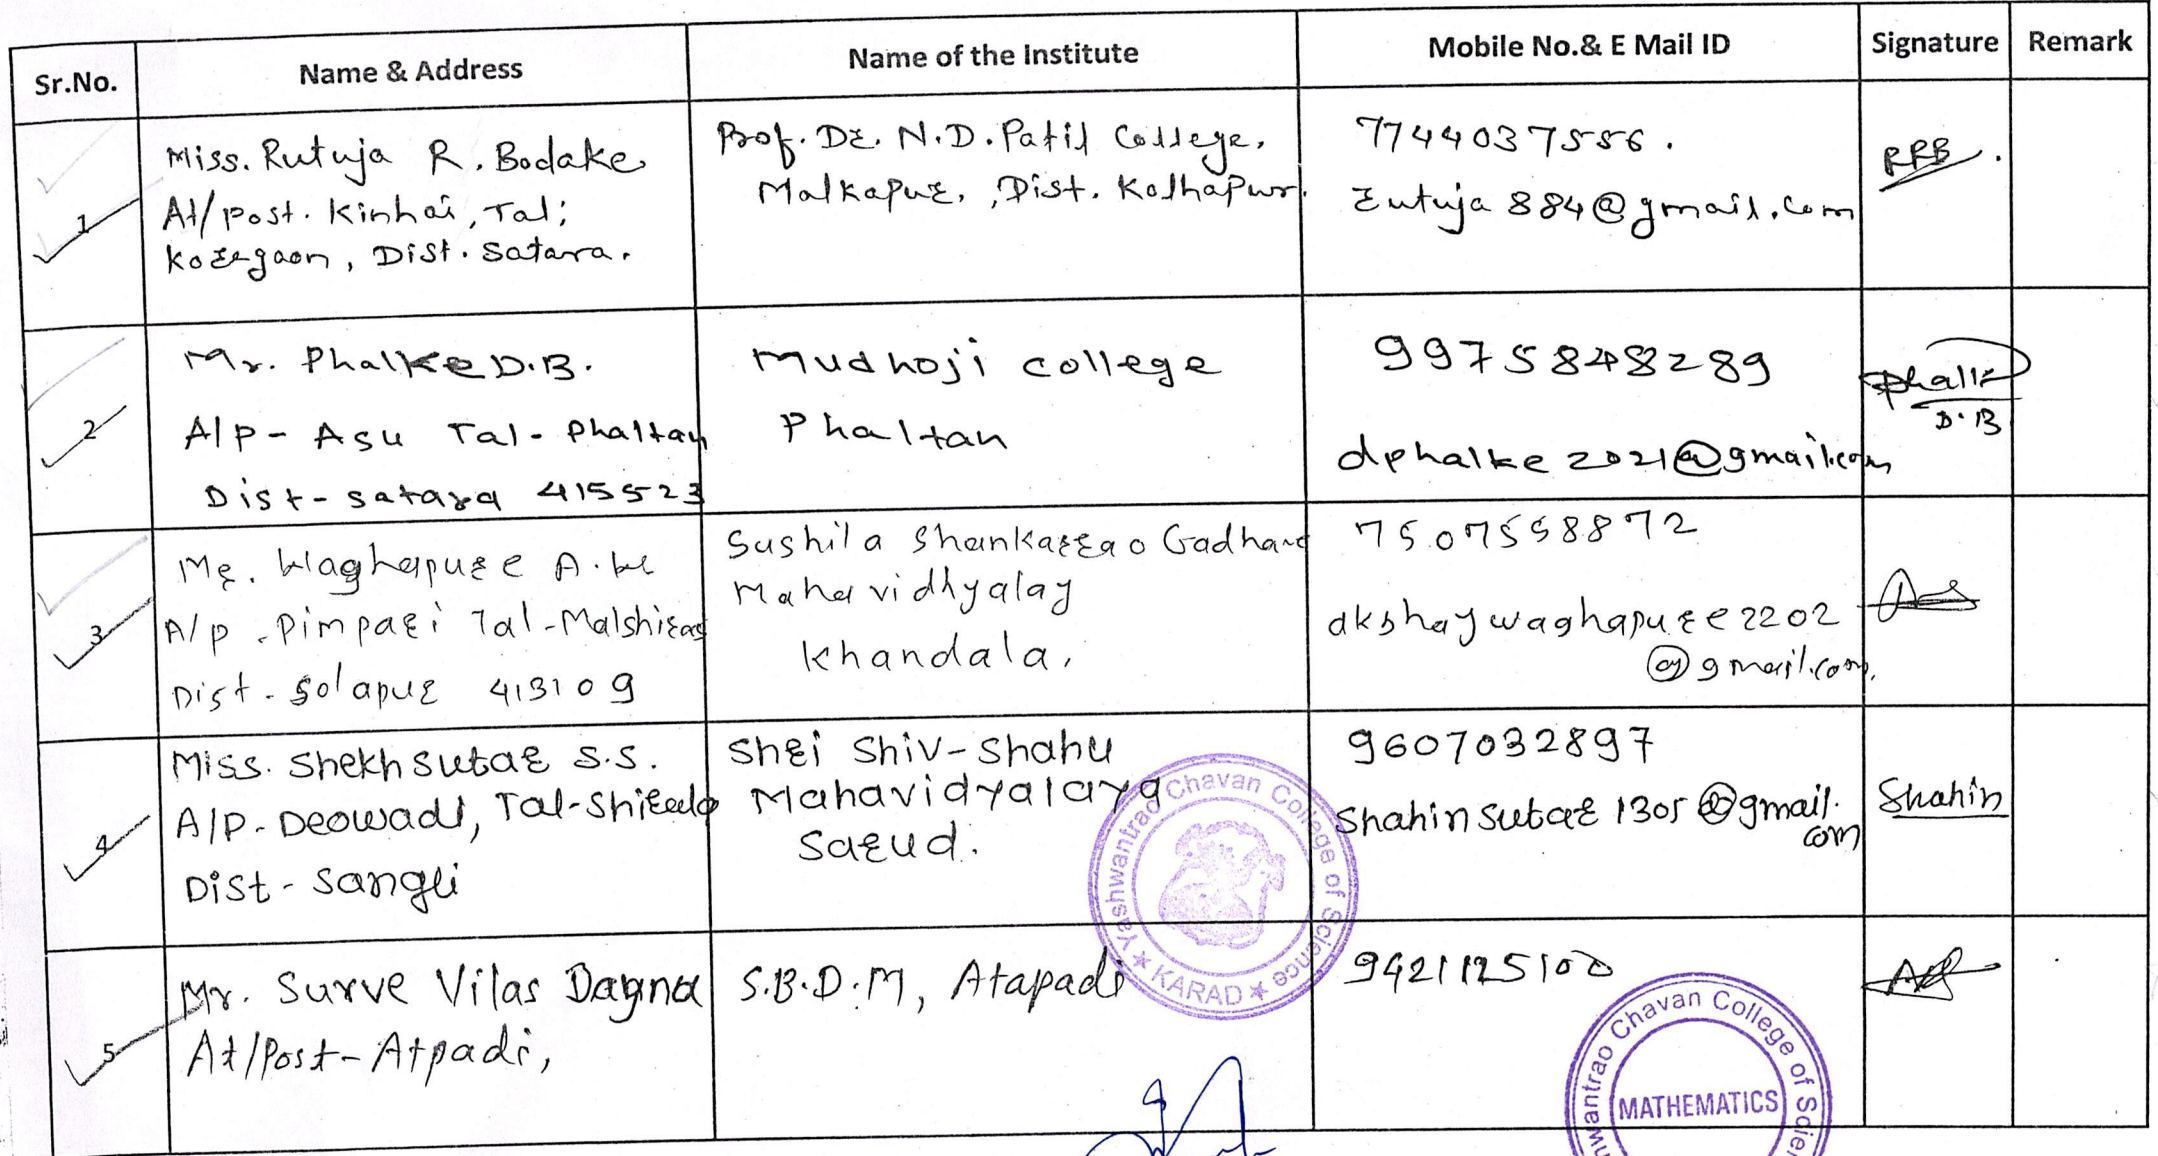 Sr.No. Name & Address Name of the Institute Mobile No.& E Mail ID Signature Remark
1
Miss. Rutuja R. Bodake
At/post. Kinhai, Tal;
Koregaon, Dist. Satara.
Prof. Dr. N.D. Patil College,
Malkapur, Dist. Kolhapur.
7744037556.
rutuja884@gmail.com
RRB.
2
Mr. Phalke D.B.
A/P- Asu Tal- Phaltan
Dist- satara 415523
Mudhoji college
Phaltan
9975848289
dphalke2021@gmail.com
D.B
3
Mr. Waghapure A. W
A/p - Pimpari Tal-Malshiras
Dist - Solapur 413109
Sushila Shankarrao Gadhave
Mahavidhyalay
Khandala,
7507558872
akshaywaghapure2202
@gmail.com.
4
Miss. Shekh sutar S.S.
A/P- Deowadi, Tal-Shirala
Dist - sangli
Shri Shiv-Shahu
Mahavidyalaya
Sarud.
9607032897
shahinsutar1305@gmail.
com
Shahin
5
Mr. Surve Vilas
At/Post-Atpadi,
S.B.D.M, Atapadi
9421125100
Yashwantrao Chavan College of Science
★ KARAD ★
Chavan College of
MATHEMATICS